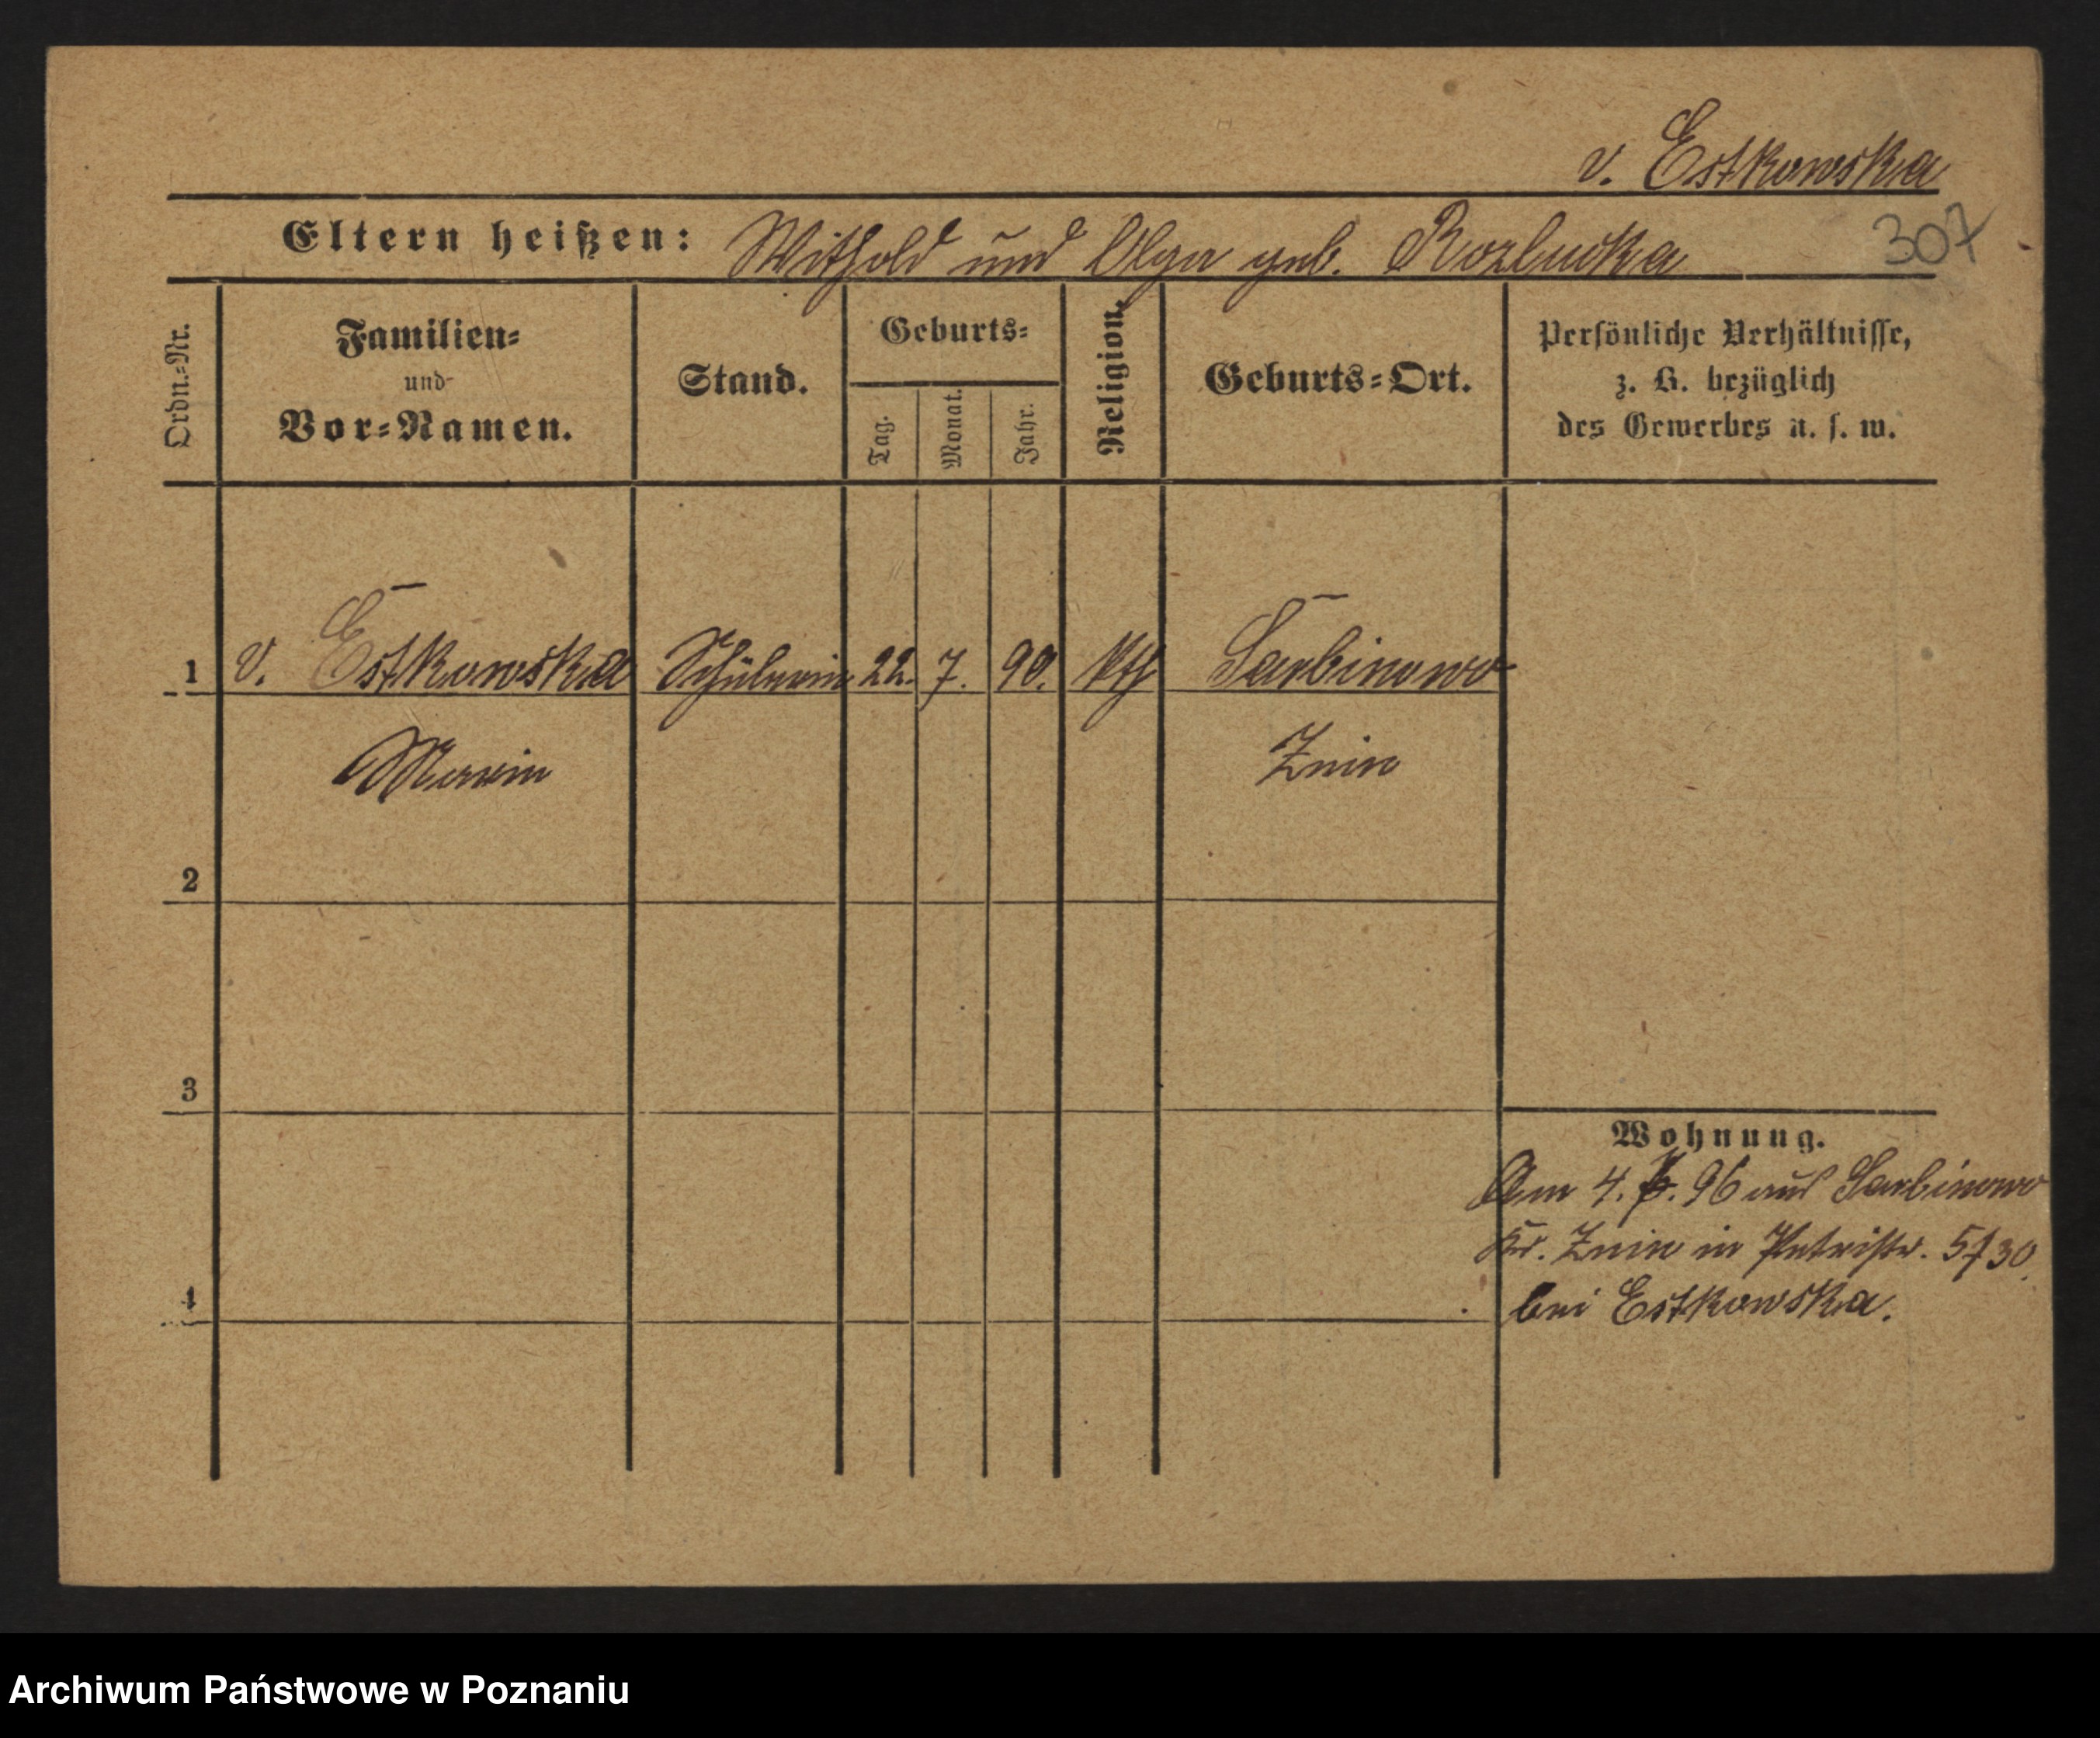 v. Estkowska
Eltern heißen: Withold und Olga geb. Rozlucka
307
Ordn.-Nr.
Familien-
und
Vor-Namen.
Stand.
Geburts-
Tag.
Monat.
Jahr.
Religion.
Geburts-Ort.
Persönliche Verhältnisse,
z. B. bezüglich
des Gewerbes u. s. w.
1 v. Estkowska Schülerin 22. 7. 90. kth Sarbinowo
Maria Znin
2
3
4
Wohnung.
Am 4. 96 aus Sarbinowo
Kr. Znin in Petristr. 5 f 30
bei Estkowska.
Archiwum Państwowe w Poznaniu